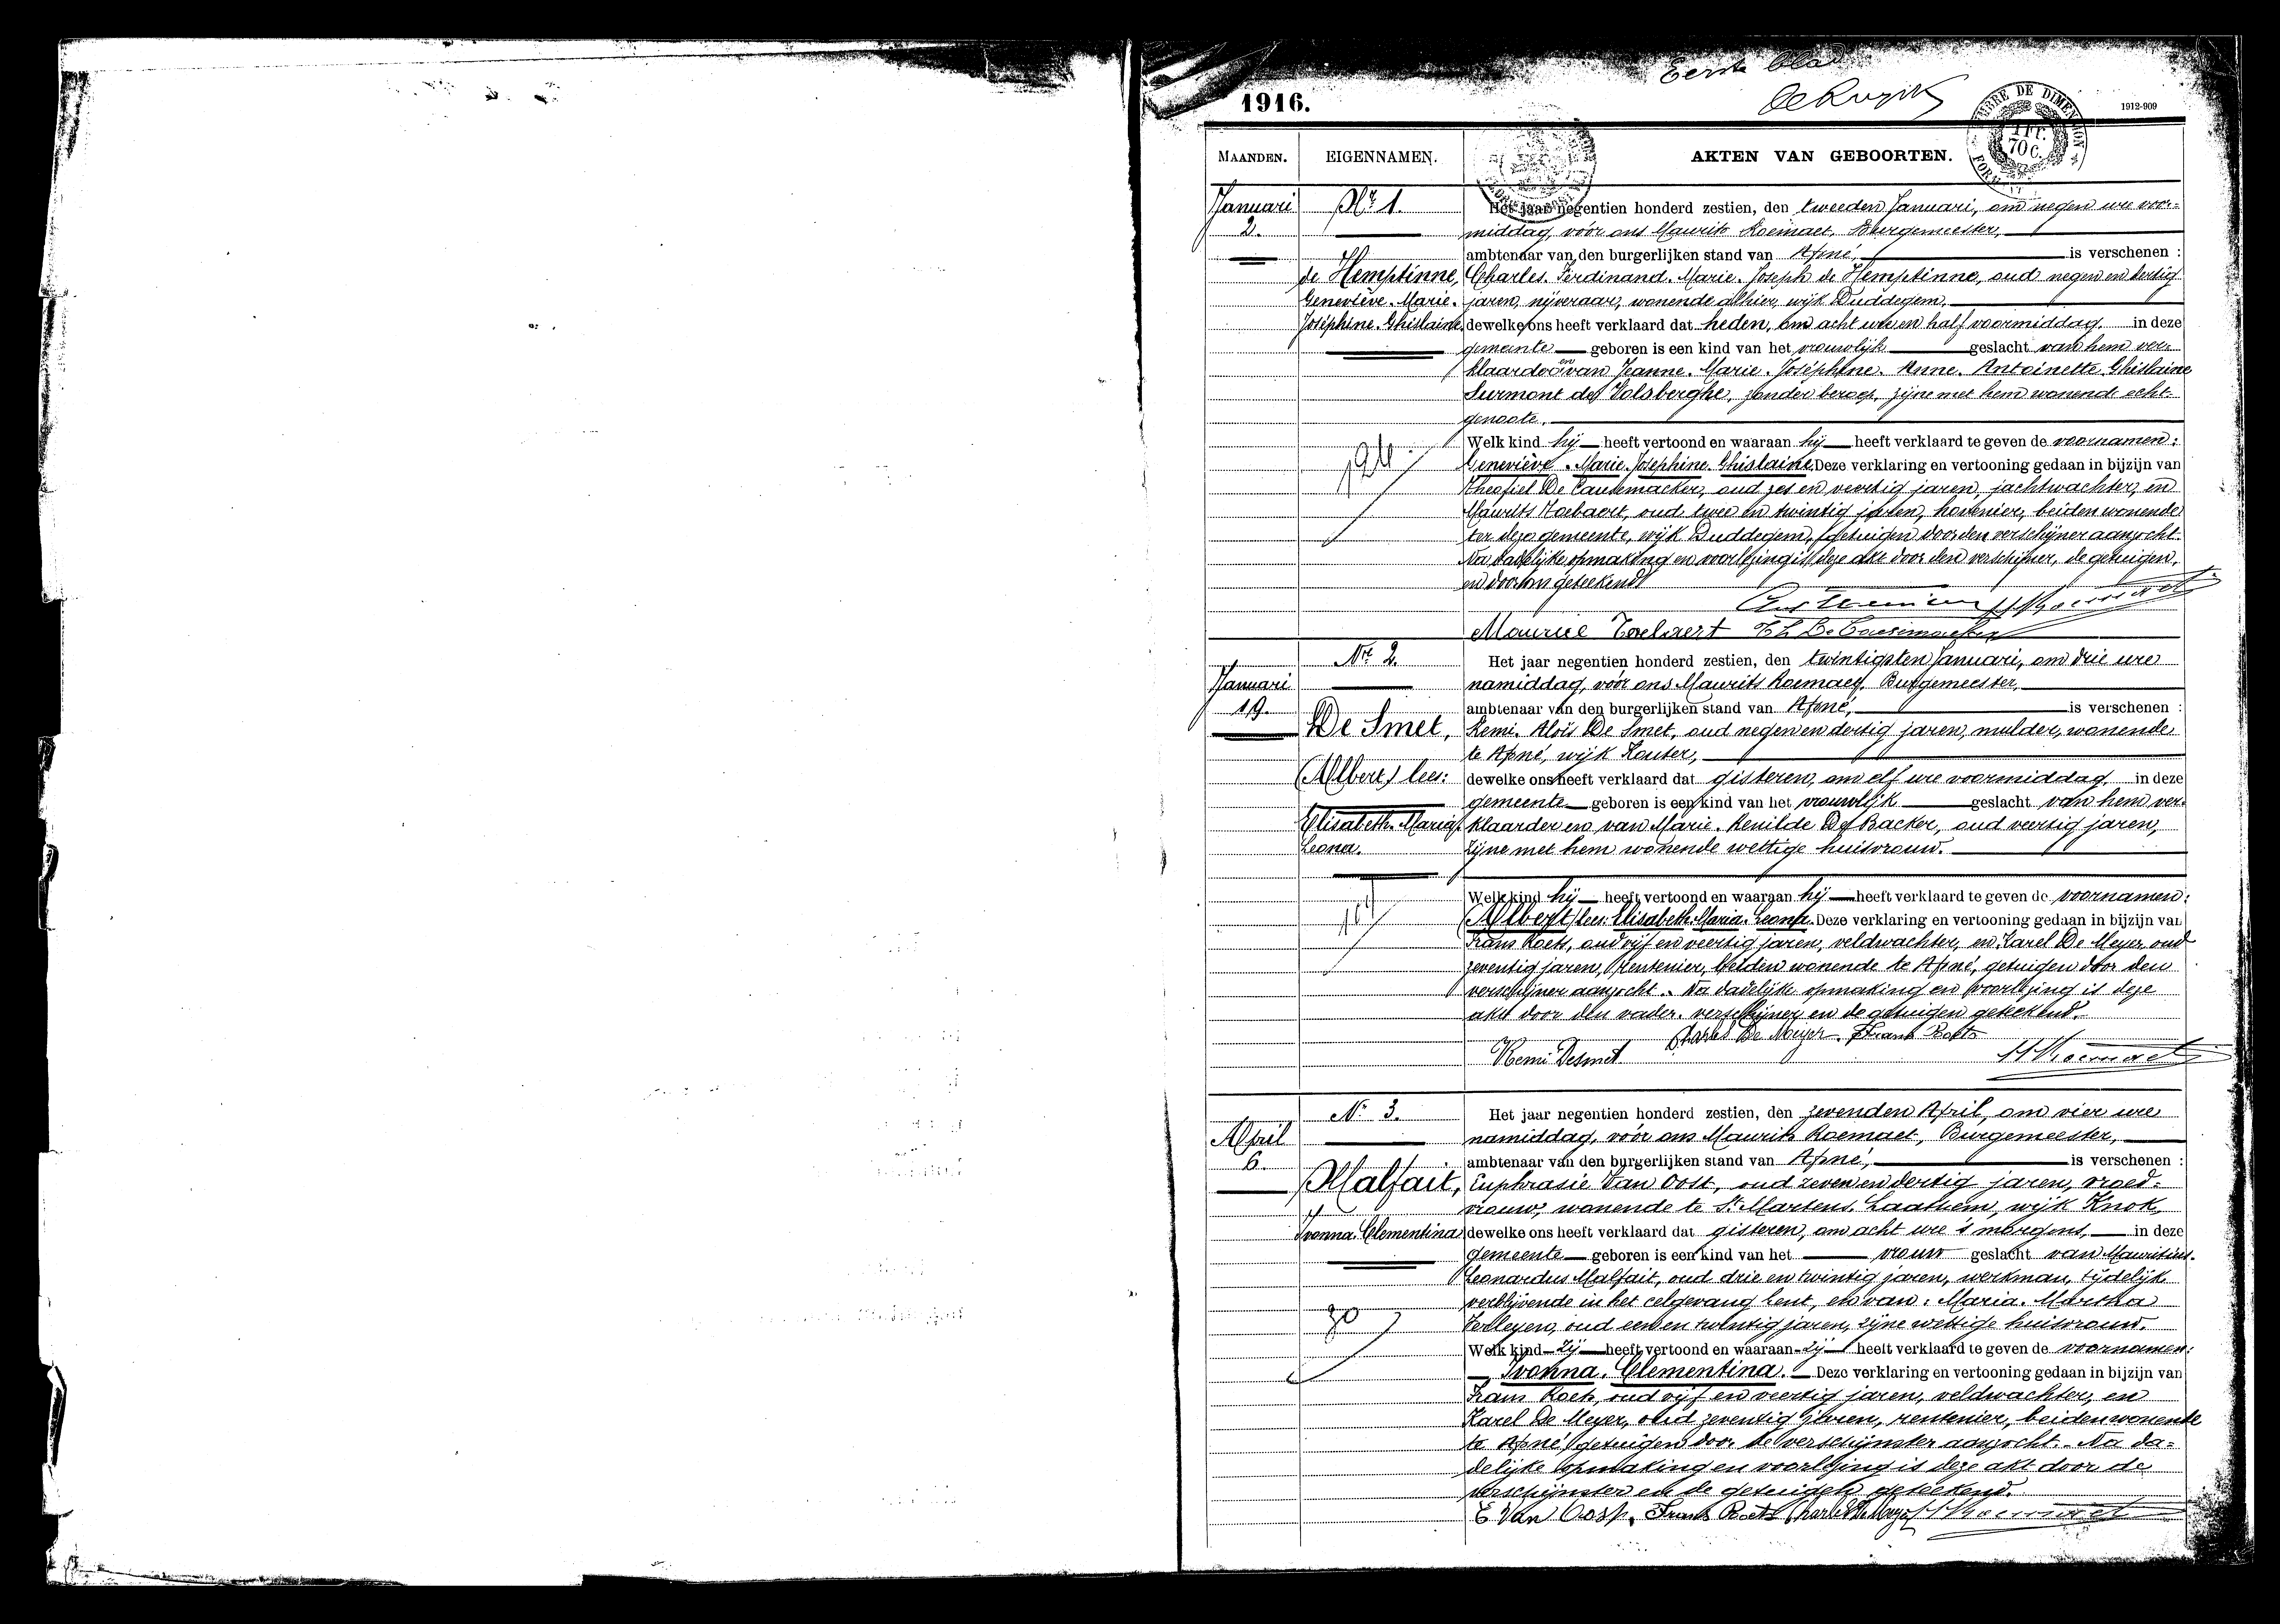 Eerste blad
1916.
1912-909
MAANDEN.
EIGENNAMEN.
AKTEN VAN GEBOORTEN.
TIMBRE DE DIMENSION
70 C.
Januari
2.
Nr 1.
de Hemptinne,
Geneviève. Marie.
Joséphine. Ghislaine.
Het jaar negentien honderd zestien, den tweeden Januari, om negen ure voor-
middag, vóór ons Maurits Roemaet, Burgemeester,
ambtenaar van den burgerlijken stand van Afsné, is verschenen :
Charles. Ferdinand. Marie. Joseph de Hemptinne, oud negen en dertig
jaren, nijveraar, wonende alhier, wijk Duddegem,
dewelke ons heeft verklaard dat heden, om acht ure en half voormiddag, in deze
gemeente geboren is een kind van het vrouwlijk geslacht van hem ver-
klaarder en van Jeanne. Marie. Joséphine. Anne. Antoinette. Ghislaine
Surmont de Volsberghe, zonder beroep, zijne met hem wonende echt-
genoote.
Welk kind hij heeft vertoond en waaraan hij heeft verklaard te geven de voornamen:
Geneviève. Marie. Josephine. Ghislaine. Deze verklaring en vertooning gedaan in bijzijn van
Theofiel De Causemacker, oud zes en veertig jaren, jachtwachter, en
Maurits oud twee en twintig jaren, hovenier, beiden wonende
ter deze gemeente, wijk Duddegem, getuigen door den verschijner aanzocht.
Na dadelijke opmaking en voorlezing is deze akt door den verschijner, de getuigen,
en door ons geteekend
Maurice Th. De Causemacker
Januari
19.
Nr 2.
De Smet,
(Albert) lees:
Elisabeth. Maria.
Leona.
Het jaar negentien honderd zestien, den twintigsten Januari, om drie ure
namiddag, vóór ons Maurits Roemaet, Burgemeester,
ambtenaar van den burgerlijken stand van Afsné, is verschenen :
Remi. Aloïs De Smet, oud negen en dertig jaren, mulder, wonende
te Afsné, wijk Kouter,
dewelke ons heeft verklaard dat gisteren, om elf ure voormiddag, in deze
gemeente geboren is een kind van het vrouwlijk geslacht van hem ver-
klaarder en van Marie. Renilde De Backer, oud veertig jaren,
zijne met hem wonende wettige huisvrouw.
Welk kind hij heeft vertoond en waaraan hij heeft verklaard te geven de voornamen:
(Albert) lees: Elisabeth. Maria. Leona. Deze verklaring en vertooning gedaan in bijzijn van
Frans Roets, oud vijf en veertig jaren, veldwachter, en Karel De Meyer, oud
zeventig jaren, rentenier, beiden wonende te Afsné, getuigen door den
verschijner aanzocht. Na dadelijke opmaking en voorlezing is deze
akt door den vader-verschijner en de getuigen geteekend.
Charles De Meyer. Frans Roets
Remi Desmet M Roemaet
April
6.
Nr 3.
Malfait,
Ivonna. Clementina
Het jaar negentien honderd zestien, den zevenden April, om vier ure
namiddag, vóór ons Maurits Roemaet, Burgemeester,
ambtenaar van den burgerlijken stand van Afsné, is verschenen :
Euphrasie Van Oost, oud zeven en dertig jaren, vroed-
vrouw, wonende te St. Martens. Laathem, wijk Knok,
dewelke ons heeft verklaard dat gisteren, om acht ure 's morgens, in deze
gemeente geboren is een kind van het vrouw geslacht van Mauritius.
Leonardus Malfait, oud drie en twintig jaren, werkman, tijdelijk
verblijvende in het celgevang Gent, en van: Maria. Martha
Verleyen, oud een en twintig jaren, zijne wettige huisvrouw.
Welk kind zij heeft vertoond en waaraan zij heeft verklaard te geven de voornamen:
Ivonna. Clementina. Deze verklaring en vertooning gedaan in bijzijn van
Frans Roets, oud vijf en veertig jaren, veldwachter, en
Karel De Meyer, oud zeventig jaren, rentenier, beiden wonende
te Afsné, getuigen door de verschijnster aanzocht. Na da-
delijke opmaking en voorlezing is deze akt door de
verschijnster en de getuigen geteekend.
E Van Oost. Frans Roets Charles De Meyer M Roemaet